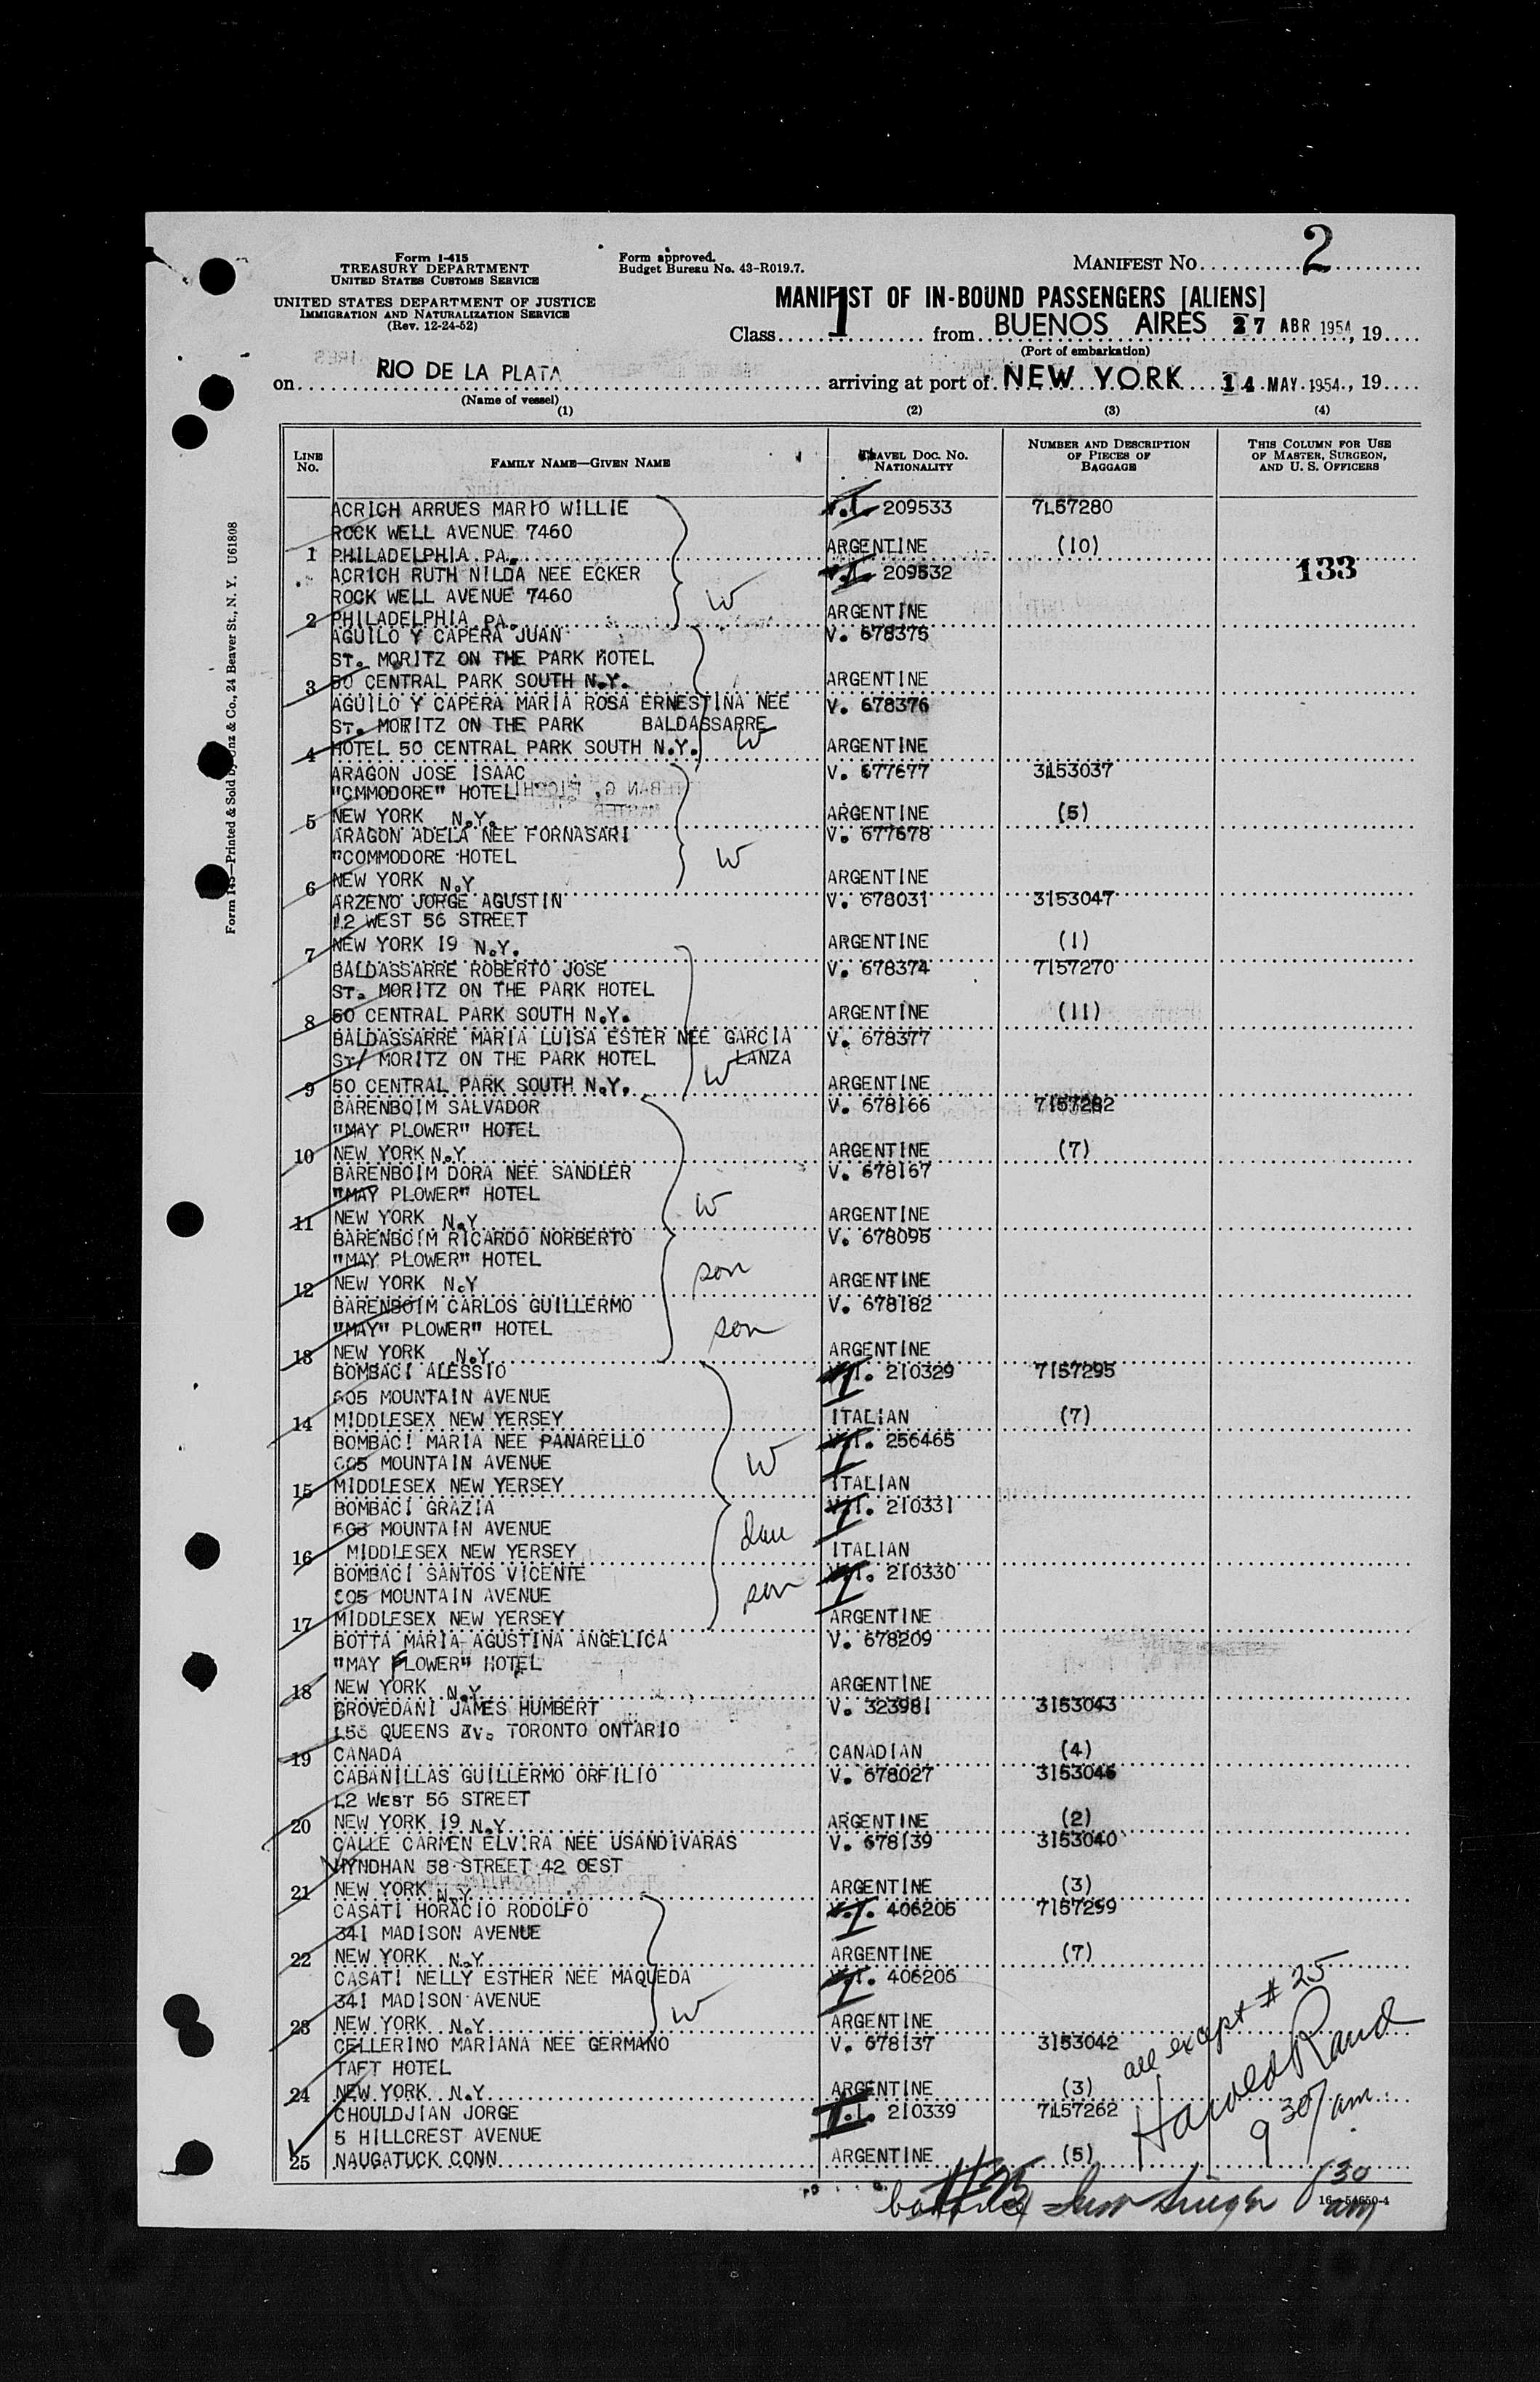 Form I-415
TREASURY DEPARTMENT
UNITED STATES CUSTOMS SERVICE
UNITED STATES DEPARTMENT OF JUSTICE
IMMIGRATION AND NATURALIZATION SERVICE
(Rev. 12-24-52)
Form approved.
Budget Bureau No. 43-R019.7.
MANIFEST NO. 2
MANIFEST OF IN-BOUND PASSENGERS [ALIENS]
Class 1 from BUENOS AIRES 27 ABR 1954, 19
(Port of embarkation)
on RIO DE LA PLATA arriving at port of NEW YORK 14 MAY 1954, 19
(Name of vessel)
(1) (2) (3) (4)
LINE NO. FAMILY NAME—GIVEN NAME TRAVEL DOC. NO. NATIONALITY NUMBER AND DESCRIPTION OF PIECES OF BAGGAGE THIS COLUMN FOR USE OF MASTER, SURGEON, AND U. S. OFFICERS
ACRICH ARRUES MARIO WILLIE V.I. 209533 7L57280
ROCK WELL AVENUE 7460
1 PHILADELPHIA PA. ARGENTINE (10)
ACRICH RUTH NILDA NEE ECKER V.I. 209532 133
ROCK WELL AVENUE 7460 W
2 PHILADELPHIA PA. ARGENTINE
AGUILO Y CAPERA JUAN V. 678375
ST. MORITZ ON THE PARK HOTEL
3 50 CENTRAL PARK SOUTH N.Y. ARGENTINE
AGUILO Y CAPERA MARIA ROSA ERNESTINA NEE V. 678376
ST. MORITZ ON THE PARK BALDASSARRE
4 HOTEL 50 CENTRAL PARK SOUTH N.Y. W ARGENTINE
ARAGON JOSE ISAAC V. 677677 3L53037
"CMMODORE" HOTEL
5 NEW YORK N.Y. ARGENTINE (5)
ARAGON ADELA NEE FORNASARI V. 677678
"COMMODORE HOTEL W
6 NEW YORK N.Y ARGENTINE
ARZENO JORGE AGUSTIN V. 678031 3153047
12 WEST 56 STREET
7 NEW YORK 19 N.Y. ARGENTINE (1)
BALDASSARRE ROBERTO JOSE V. 678374 7157270
ST. MORITZ ON THE PARK HOTEL
8 50 CENTRAL PARK SOUTH N.Y. ARGENTINE (11)
BALDASSARRE MARIA LUISA ESTER NEE GARCIA V. 678377
ST/ MORITZ ON THE PARK HOTEL LANZA
9 50 CENTRAL PARK SOUTH N.Y. W ARGENTINE
BARENBOIM SALVADOR V. 678166 7157282
"MAY PLOWER" HOTEL
10 NEW YORK N.Y ARGENTINE (7)
BARENBOIM DORA NEE SANDLER V. 678167
"MAY PLOWER" HOTEL W
11 NEW YORK N.Y ARGENTINE
BARENBOIM RICARDO NORBERTO V. 678095
"MAY PLOWER" HOTEL son
12 NEW YORK N.Y ARGENTINE
BARENBOIM CARLOS GUILLERMO V. 678182
"MAY" PLOWER" HOTEL son
13 NEW YORK N.Y. ARGENTINE
BOMBACI ALESSIO V.I. 210329 7157295
605 MOUNTAIN AVENUE
14 MIDDLESEX NEW YERSEY ITALIAN (7)
BOMBACI MARIA NEE PANARELLO V.I. 256465
605 MOUNTAIN AVENUE W
15 MIDDLESEX NEW YERSEY ITALIAN
BOMBACI GRAZIA V.I. 210331
605 MOUNTAIN AVENUE dau
16 MIDDLESEX NEW YERSEY ITALIAN
BOMBACI SANTOS VICENTE V.I. 210330
605 MOUNTAIN AVENUE son
17 MIDDLESEX NEW YERSEY ARGENTINE
BOTTA MARIA AGUSTINA ANGELICA V. 678209
"MAY FLOWER" HOTEL
18 NEW YORK N.Y ARGENTINE
BROVEDANI JAMES HUMBERT V. 323981 3153043
QUEENS Av. TORONTO ONTARIO
19 CANADA CANADIAN (4)
CABANILLAS GUILLERMO ORFILIO V. 678027 3153046
12 WEST 56 STREET
20 NEW YORK 19 N.Y ARGENTINE (2)
CALLE CARMEN ELVIRA NEE USANDIVARAS V. 678139 3153040
WYNDHAN 58 STREET 42 OEST
21 NEW YORK N.Y. ARGENTINE (3)
CASATI HORACIO RODOLFO V.I. 406205 7157259
341 MADISON AVENUE
22 NEW YORK N.Y. ARGENTINE (7)
CASATI NELLY ESTHER NEE MAQUEDA V.I. 406206
341 MADISON AVENUE W
23 NEW YORK N.Y ARGENTINE
CELLERINO MARIANA NEE GERMANO V. 678137 3153042
TAFT HOTEL
24 NEW YORK N.Y ARGENTINE (3)
CHOULDJIAN JORGE V.I. 210339 7L57262
5 HILLCREST AVENUE
25 NAUGATUCK CONN. ARGENTINE (5)
all except #25
Harold Rand
9 30/am
#25
30 am
16—54650-4
Printed & Sold by Unz & Co., 24 Beaver St., N. Y. U61808